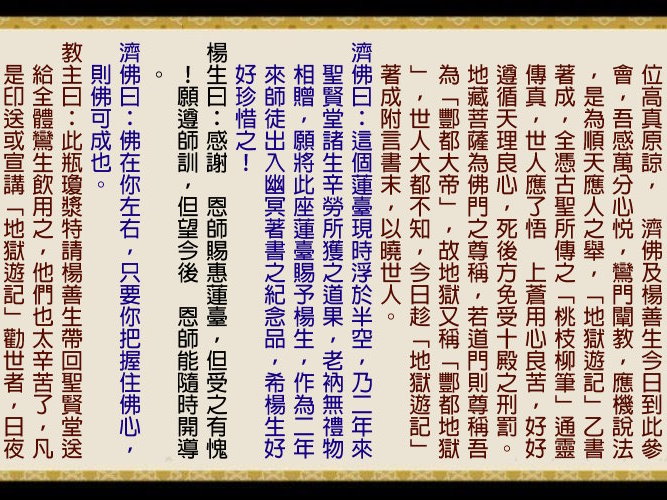 位高真原諒，　濟佛及楊善生今日到此參
會，吾感萬分心悅，鸞門闡教，應機說法
，是為順天應人之舉，「地獄遊記」乙書
著成，全憑古聖所傳之「桃枝柳筆」通靈
傳真，世人應了悟　上蒼用心良苦，好好
遵循天理良心，死後方免受十殿之刑罰。
地藏菩薩為佛門之尊稱，若道門則尊稱吾
為「酆都大帝」，故地獄又稱「酆都地獄
」，世人大都不知，今日趁「地獄遊記」
著成附言書末，以曉世人。
濟佛曰：這個蓮臺現時浮於半空，乃二年來
聖賢堂諸生辛勞所獲之道果，老衲無禮物
相贈，願將此座蓮臺賜予楊生，作為二年
來師徒出入幽冥著書之紀念品，希楊生好
好珍惜之！
楊生曰：感謝　恩師賜惠蓮臺，但受之有愧
！願遵師訓，但望今後　恩師能隨時開導
。
濟佛曰：佛在你左右，只要你把握住佛心，
則佛可成也。
教主曰：此瓶瓊漿特請楊善生帶回聖賢堂送
給全體鸞生飲用之，他們也太辛苦了，凡
是印送或宣講「地獄遊記」勸世者，日夜